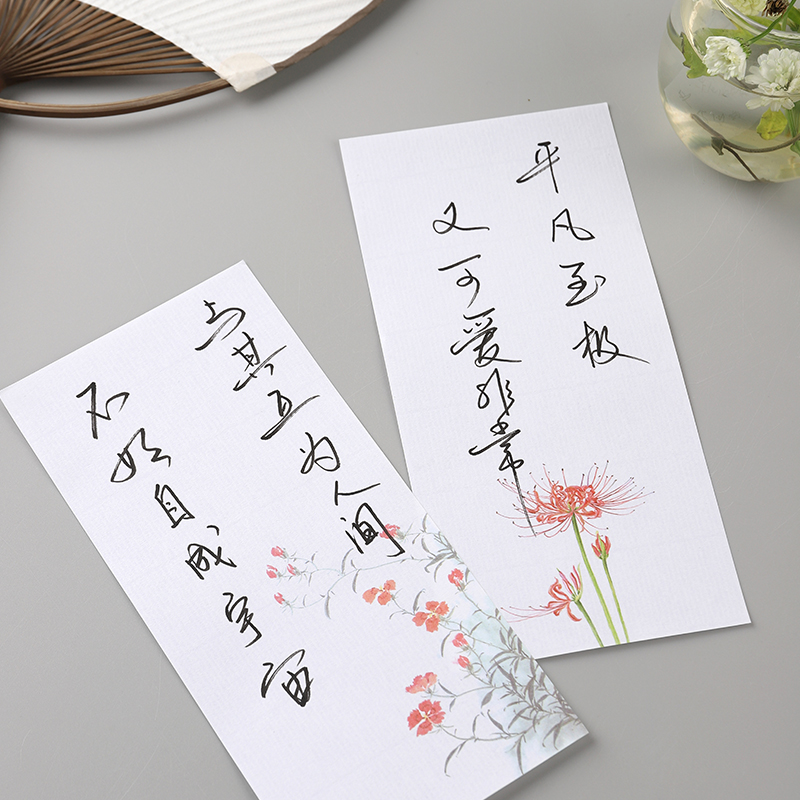 平凡至极
又可爱非常
与其互为人间
不如自成宇宙